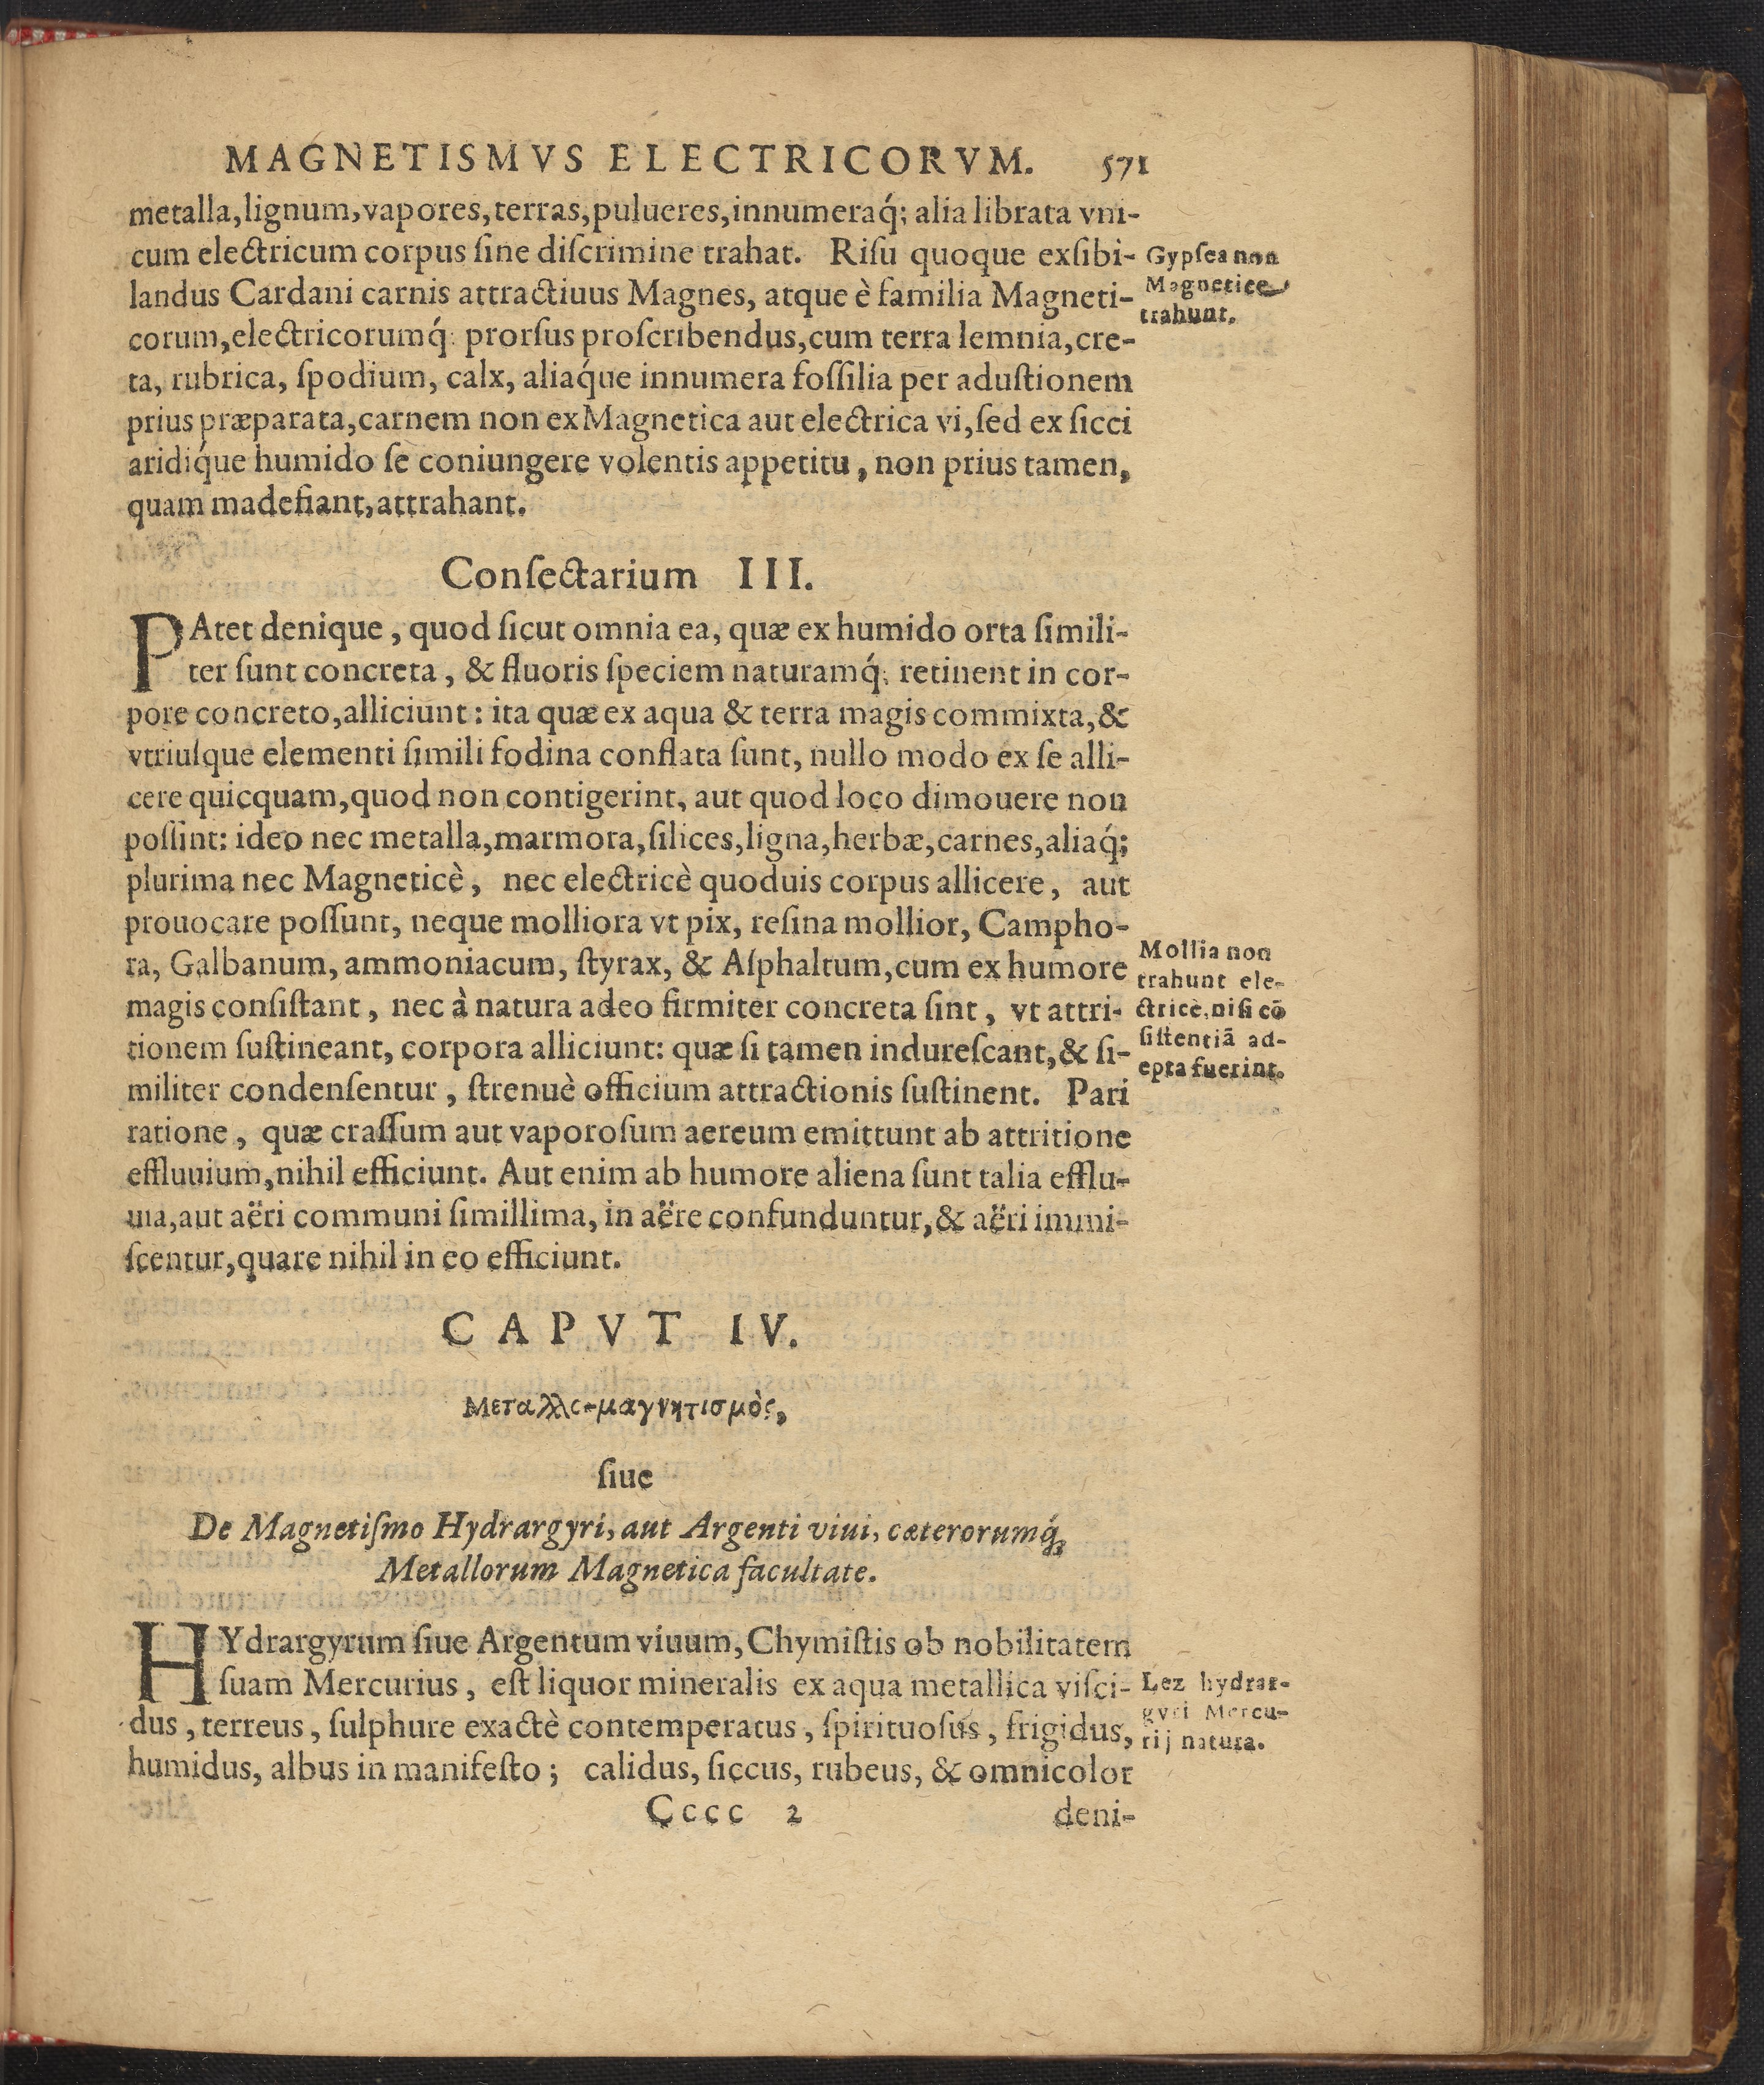 MAGNETISMVS ELECTRICORVM. 571
metalla,lignum,vapores,terras,pulueres,innumeraq́; alia librata vni-
cum electricum corpus ſine diſcrimine trahat. Riſu quoque exſibi-
landus Cardani carnis attractiuus Magnes, atque è familia Magneti-
corum,electricorumq́; prorſus proſcribendus,cum terra lemnia,cre-
ta, rubrica, ſpodium, calx, aliaq́ue innumera foſſilia per aduſtionem
prius præparata,carnem non ex Magnetica aut electrica vi,ſed ex ſicci
aridiq́ue humido ſe coniungere volentis appetitu, non prius tamen,
quam madefiant,attrahant.
Gypſea non
Magnetice
trahunt.
Conſectarium III.
PAtet denique, quod ſicut omnia ea, quæ ex humido orta ſimili-
ter ſunt concreta, & fluoris ſpeciem naturamq́; retinent in cor-
pore concreto,alliciunt: ita quæ ex aqua & terra magis commixta,&
vtriuſque elementi ſimili fodina conflata ſunt, nullo modo ex ſe alli-
cere quicquam,quod non contigerint, aut quod loco dimouere non
poſſint: ideo nec metalla,marmora,ſilices,ligna,herbæ,carnes,aliaq́;
plurima nec Magneticè, nec electricè quoduis corpus allicere, aut
prouocare poſſunt, neque molliora vt pix, reſina mollior, Campho-
ra, Galbanum, ammoniacum, ſtyrax, & Aſphaltum,cum ex humore
magis conſiſtant, nec à natura adeo firmiter concreta ſint, vt attri-
tionem ſuſtineant, corpora alliciunt: quæ ſi tamen indureſcant,& ſi-
militer condenſentur, ſtrenuè officium attractionis ſuſtinent. Pari
ratione, quæ craſſum aut vaporoſum aereum emittunt ab attritione
effluuium,nihil efficiunt. Aut enim ab humore aliena ſunt talia efflu-
uia,aut aëri communi ſimillima, in aëre confunduntur,& aëri immi-
ſcentur,quare nihil in eo efficiunt.
Mollia non
trahunt ele-
ctricè,niſi cō
ſiſtentiā ad-
epta fuerint.
CAPVT IV.
Μεταλλο-μαγνητισμὸς,
ſiue
De Magnetiſmo Hydrargyri, aut Argenti viui, cæterorumq́;
Metallorum Magnetica facultate.
HYdrargyrum ſiue Argentum viuum,Chymiſtis ob nobilitatem
ſuam Mercurius, eſt liquor mineralis ex aqua metallica viſci-
dus, terreus, ſulphure exactè contemperatus, ſpirituoſus, frigidus,
humidus, albus in manifeſto; calidus, ſiccus, rubeus, & omnicolor
Lez hydrar-
gyri Mercu-
rij natura.
Cccc 2 deni-